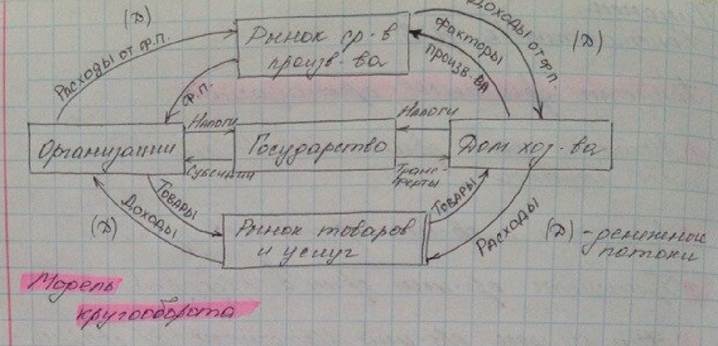 (Д)
Расходы от Ф.П.
Рынок ср-в
произв-ва
Доходы от Ф.П.
(Д)
Факторы
произв-ва
Ф.П.
Организации
Налоги
Субсидии
Государство
Налоги
Транс-
ферты
Дом хоз-ва
Товары
Доходы
(Д)
Рынок товаров
и услуг
Товары
Расходы
(Д) - денежные
потоки
Модель
кругооборота